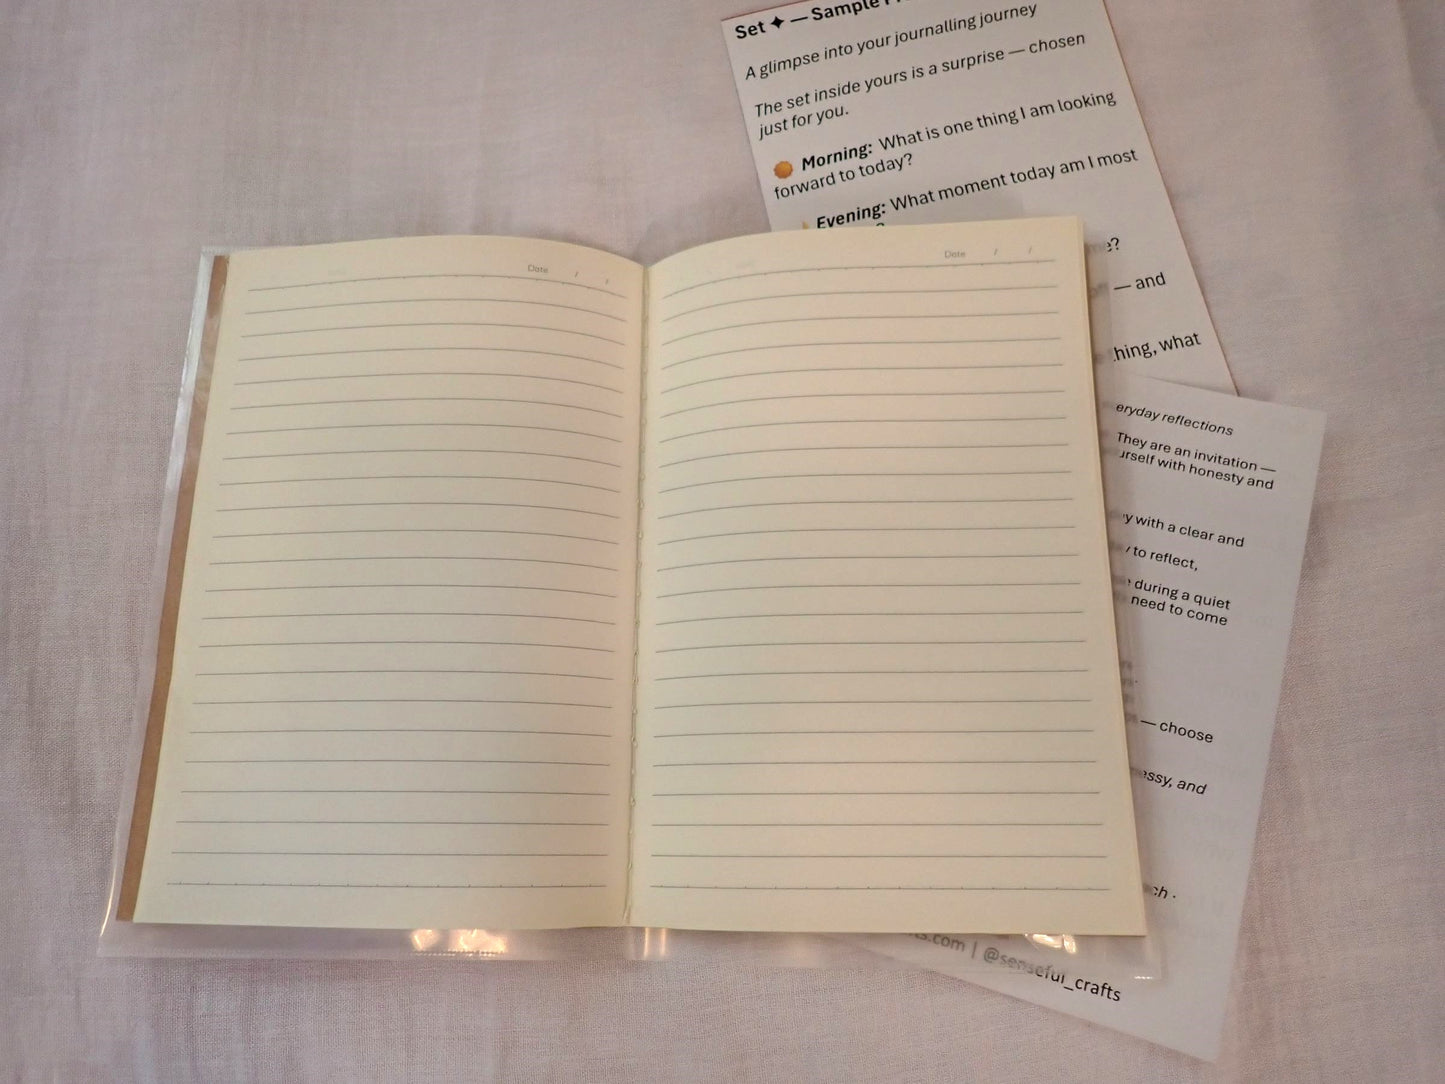 Set ✦ — Sample
A glimpse into your journalling journey
The set inside yours is a surprise — chosen
just for you.
Morning: What is one thing I am looking
forward to today?
Evening: What moment today am I most
?
— and
what
Date / /
Date / /
reflections
They are an invitation —
with honesty and
with a clear and
to reflect,
during a quiet
need to come
— choose
and
.com | @senseful_crafts